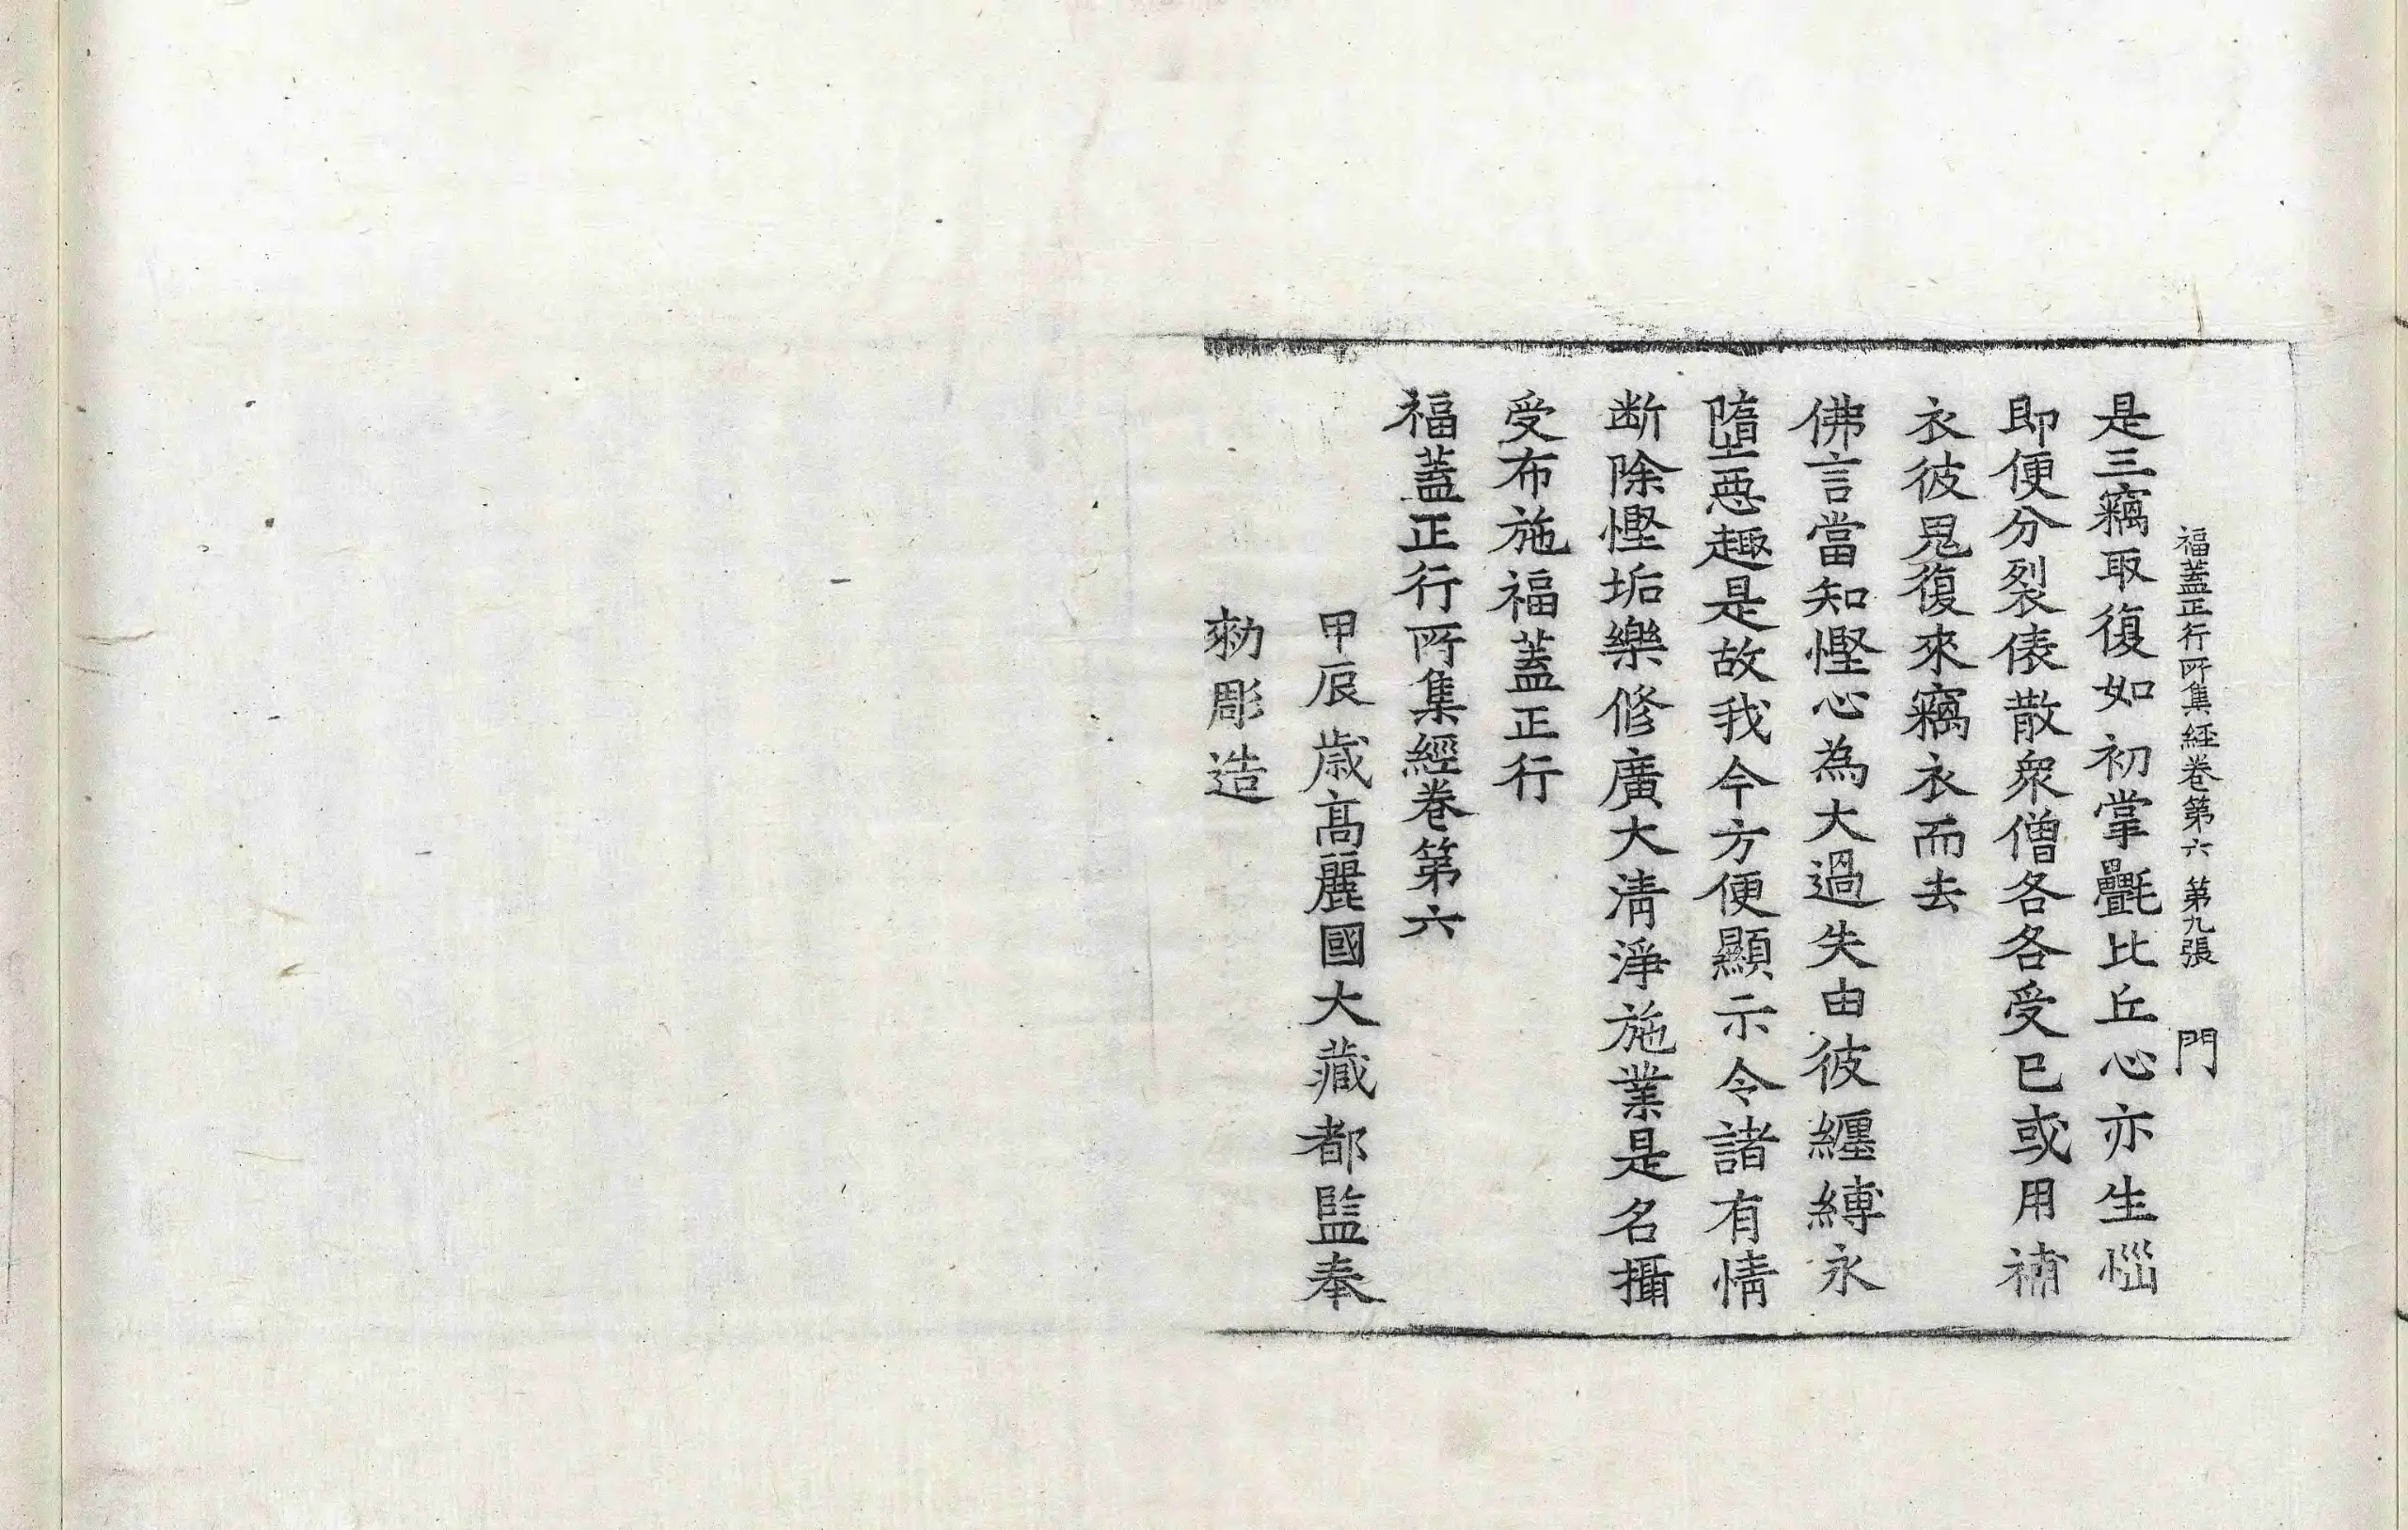 福蓋正行所集經卷第六 第九張 門
是三竊取復如初掌㲲比丘心亦生惱
即便分裂俵散衆僧各各受已或用補
衣彼鬼復來竊衣而去
佛言當知慳心為大過失由彼纏縛永
墮惡趣是故我今方便顯示令諸有情
断除慳垢樂修廣大清淨施業是名攝
受布施福蓋正行
福蓋正行所集經卷第六
甲辰歳高麗國大藏都監奉
勑彫造